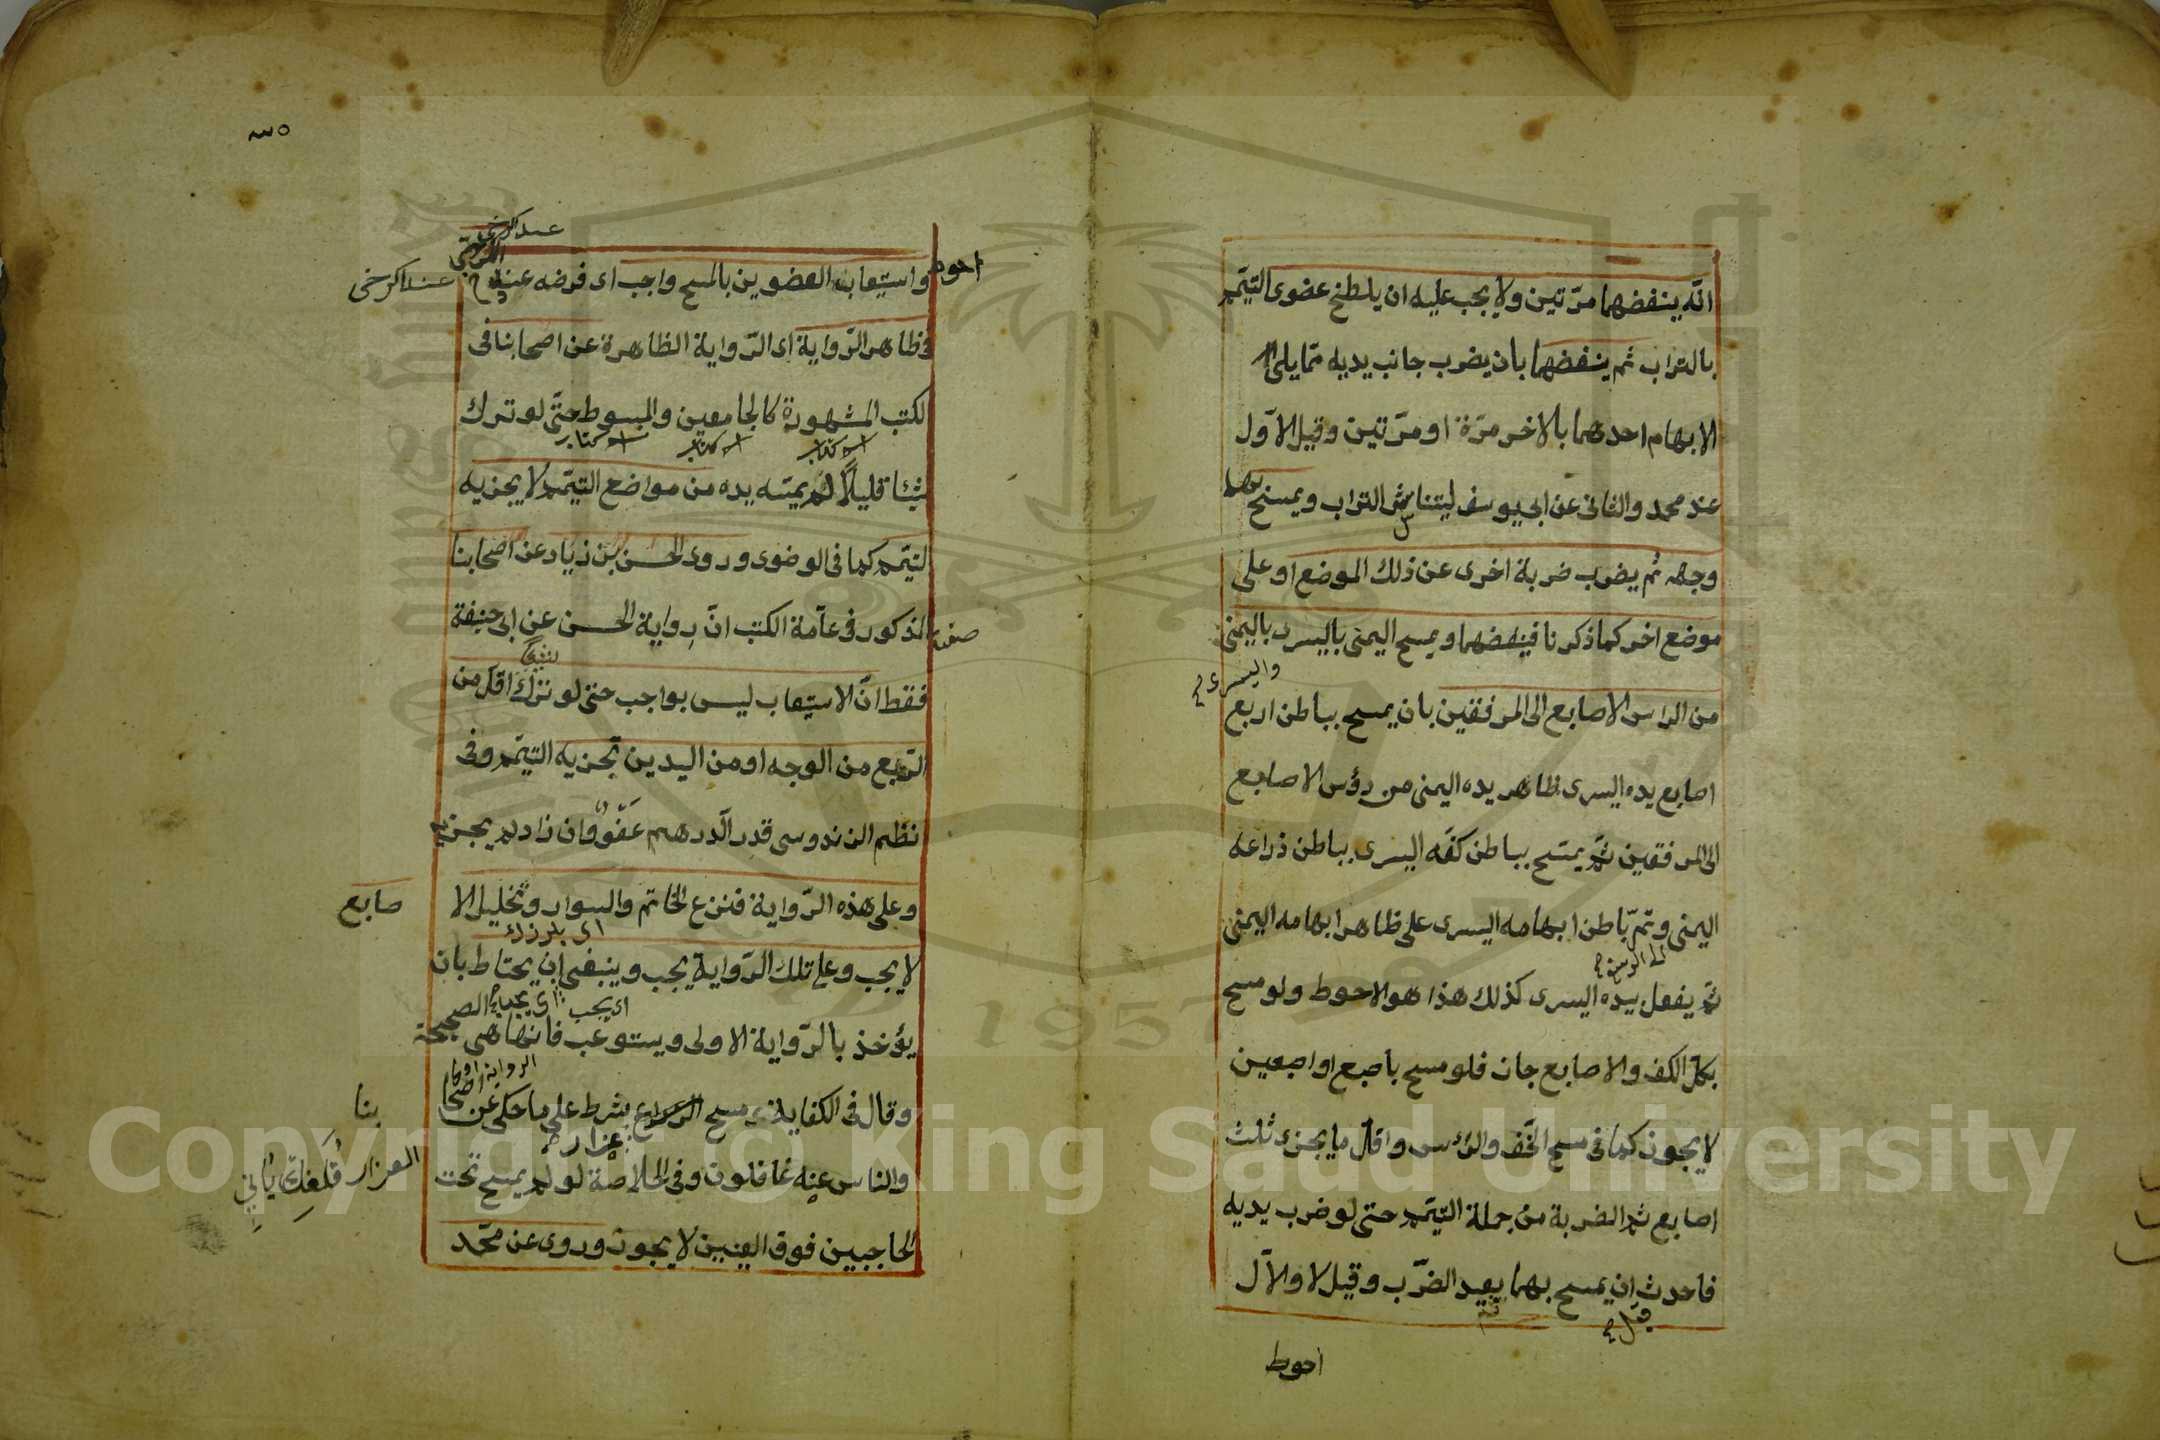 انّه ينفضهما مرّتين ولا يجب عليه ان يلطخ عضوى التيمّم
بالتراب ثم ينفضهما بان يضرب جانب يديه ممّا يلى
الابهام احدهما بالاخر مرّة او مرّتين وقيل الاوّل
عند محمد والثانى عن ابى يوسف ليتناثر التراب ويمسح بهما
وجهه ثم يضرب ضربة اخرى عن ذلك الموضع او على
موضع اخر كما ذكرنا فينفضهما ويمسح اليمنى باليسرى باليمنى
واليسرى
من الراس الاصابع الى المرفقين بان يمسح بباطن اربع
اصابع يده اليسرى ظاهر يده اليمنى من رؤس الاصابع
الى المرفقين ثم يمسح بباطن كفّه اليسرى بباطن ذراعه
اليمنى وتمرّ باطن ابهامه اليسرى على ظاهر ابهامه اليمنى
الى الرسغ
ثم يفعل بيده اليسرى كذلك هذا هو الاحوط ولو مسح
بكلّ الكف والاصابع جاز فلو مسح باصبع او اصبعين
لا يجوز كما فى مسح الخفّ والرّس واقلّ ما يجزى ثلث
اصابع ثم الضربة من جملة التيمّم حتى لو ضرب يديه
فاحدث ان يمسح بهما يعيد الضّرب وقيل لا والاوّل
قبل
احوط
٣٥
عند الكرخى
احوط
واستيعاب العضوين بالمسح واجب اى فرضه عنه
عند الكرخى
فى ظاهر الرّواية اى الرّواية الظاهرة عن اصحابنا فى
لكتب المشهورة كالجامعين والمبسوط حتّى لو ترك
اسم كتاب اسم كتاب اسم كتاب
شيئا قليلاً لم يمسّه يده من مواضع التيمّم لا يجزيه
لتيمّم كما فى الوضوى وروى الحسن بن زياد عن اصحابنا
المذكور فى عامّة الكتب انّ رواية الحسن عن ابى حنيفة
فقط انّ الاستيعاب ليس بواجب حتى لو ترك اقل من
الرّبع من الوجه او من اليدين تجزيه التيمّم وفى
نظم الزندوسى قدر الدّرهم عفو وان زاد لم يجزيه
وعلى هذه الرّواية فنزع الخاتم والسوار وتخليل الا
صابع
لا يجب وعلى تلك الرّواية يجب وينبغى ان يحتاط بان
اى يجب
يؤخذ بالرّواية الاولى ويستوعب فانها هى الصحيحة
وقال فى الكفاية مسح بشرط على ما حكى عن اصحا
بنا
والناس عنه غافلون وفى الخلاصة لو لم يمسح تحت
الحاجبين فوق العينين لا يجوز وروى عن محّمد